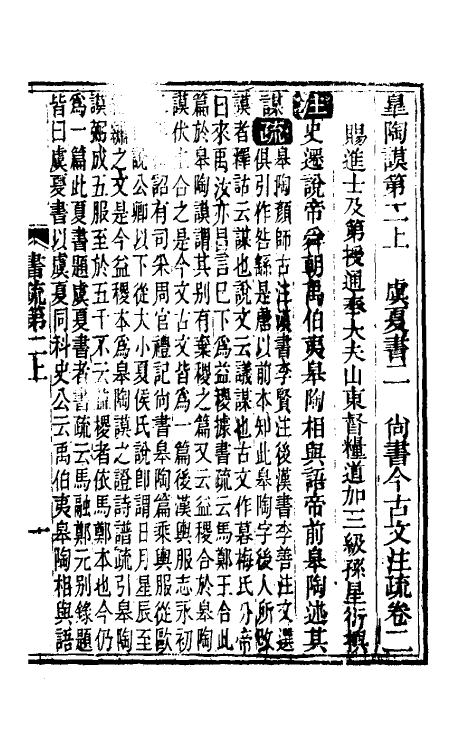 皐陶謨第二上　虞夏書二　尚書今古文注疏卷二
賜進士及第授通奉大夫山東督糧道加三級孫星衍撰
注史遷說帝舜朝禹伯夷皐陶相與語帝前皐陶述其
謀疏皐陶顏師古注漢書李賢注後漢書李善注文選
俱引作咎繇是唐以前本如此皐陶字後人所改
謨者釋詁云謀也說文云議謀也古文作暮梅氏分帝
曰來禹汝亦昌言已下爲益稷據書疏云馬鄭王合此
篇於皐陶謨謂其別有棄稷之篇又云益稷合於皐陶
謨伏生合之是今文古文皆爲一篇後漢輿服志永初
二年詔有司采周官禮記尚書皐陶篇乘輿服從歐
說公卿以下從大小夏侯氏說卽謂日月星辰至
黼之文是今益稷本爲皐陶謨之證詩譜疏引皐陶
謨弼成五服至於五千不云益稷者依馬鄭本也今仍
爲一篇此夏書題虞夏書者書疏云馬融鄭元別錄題
皆曰虞夏書以虞夏同科史公云禹伯夷皐陶相與語
書疏第二上
一